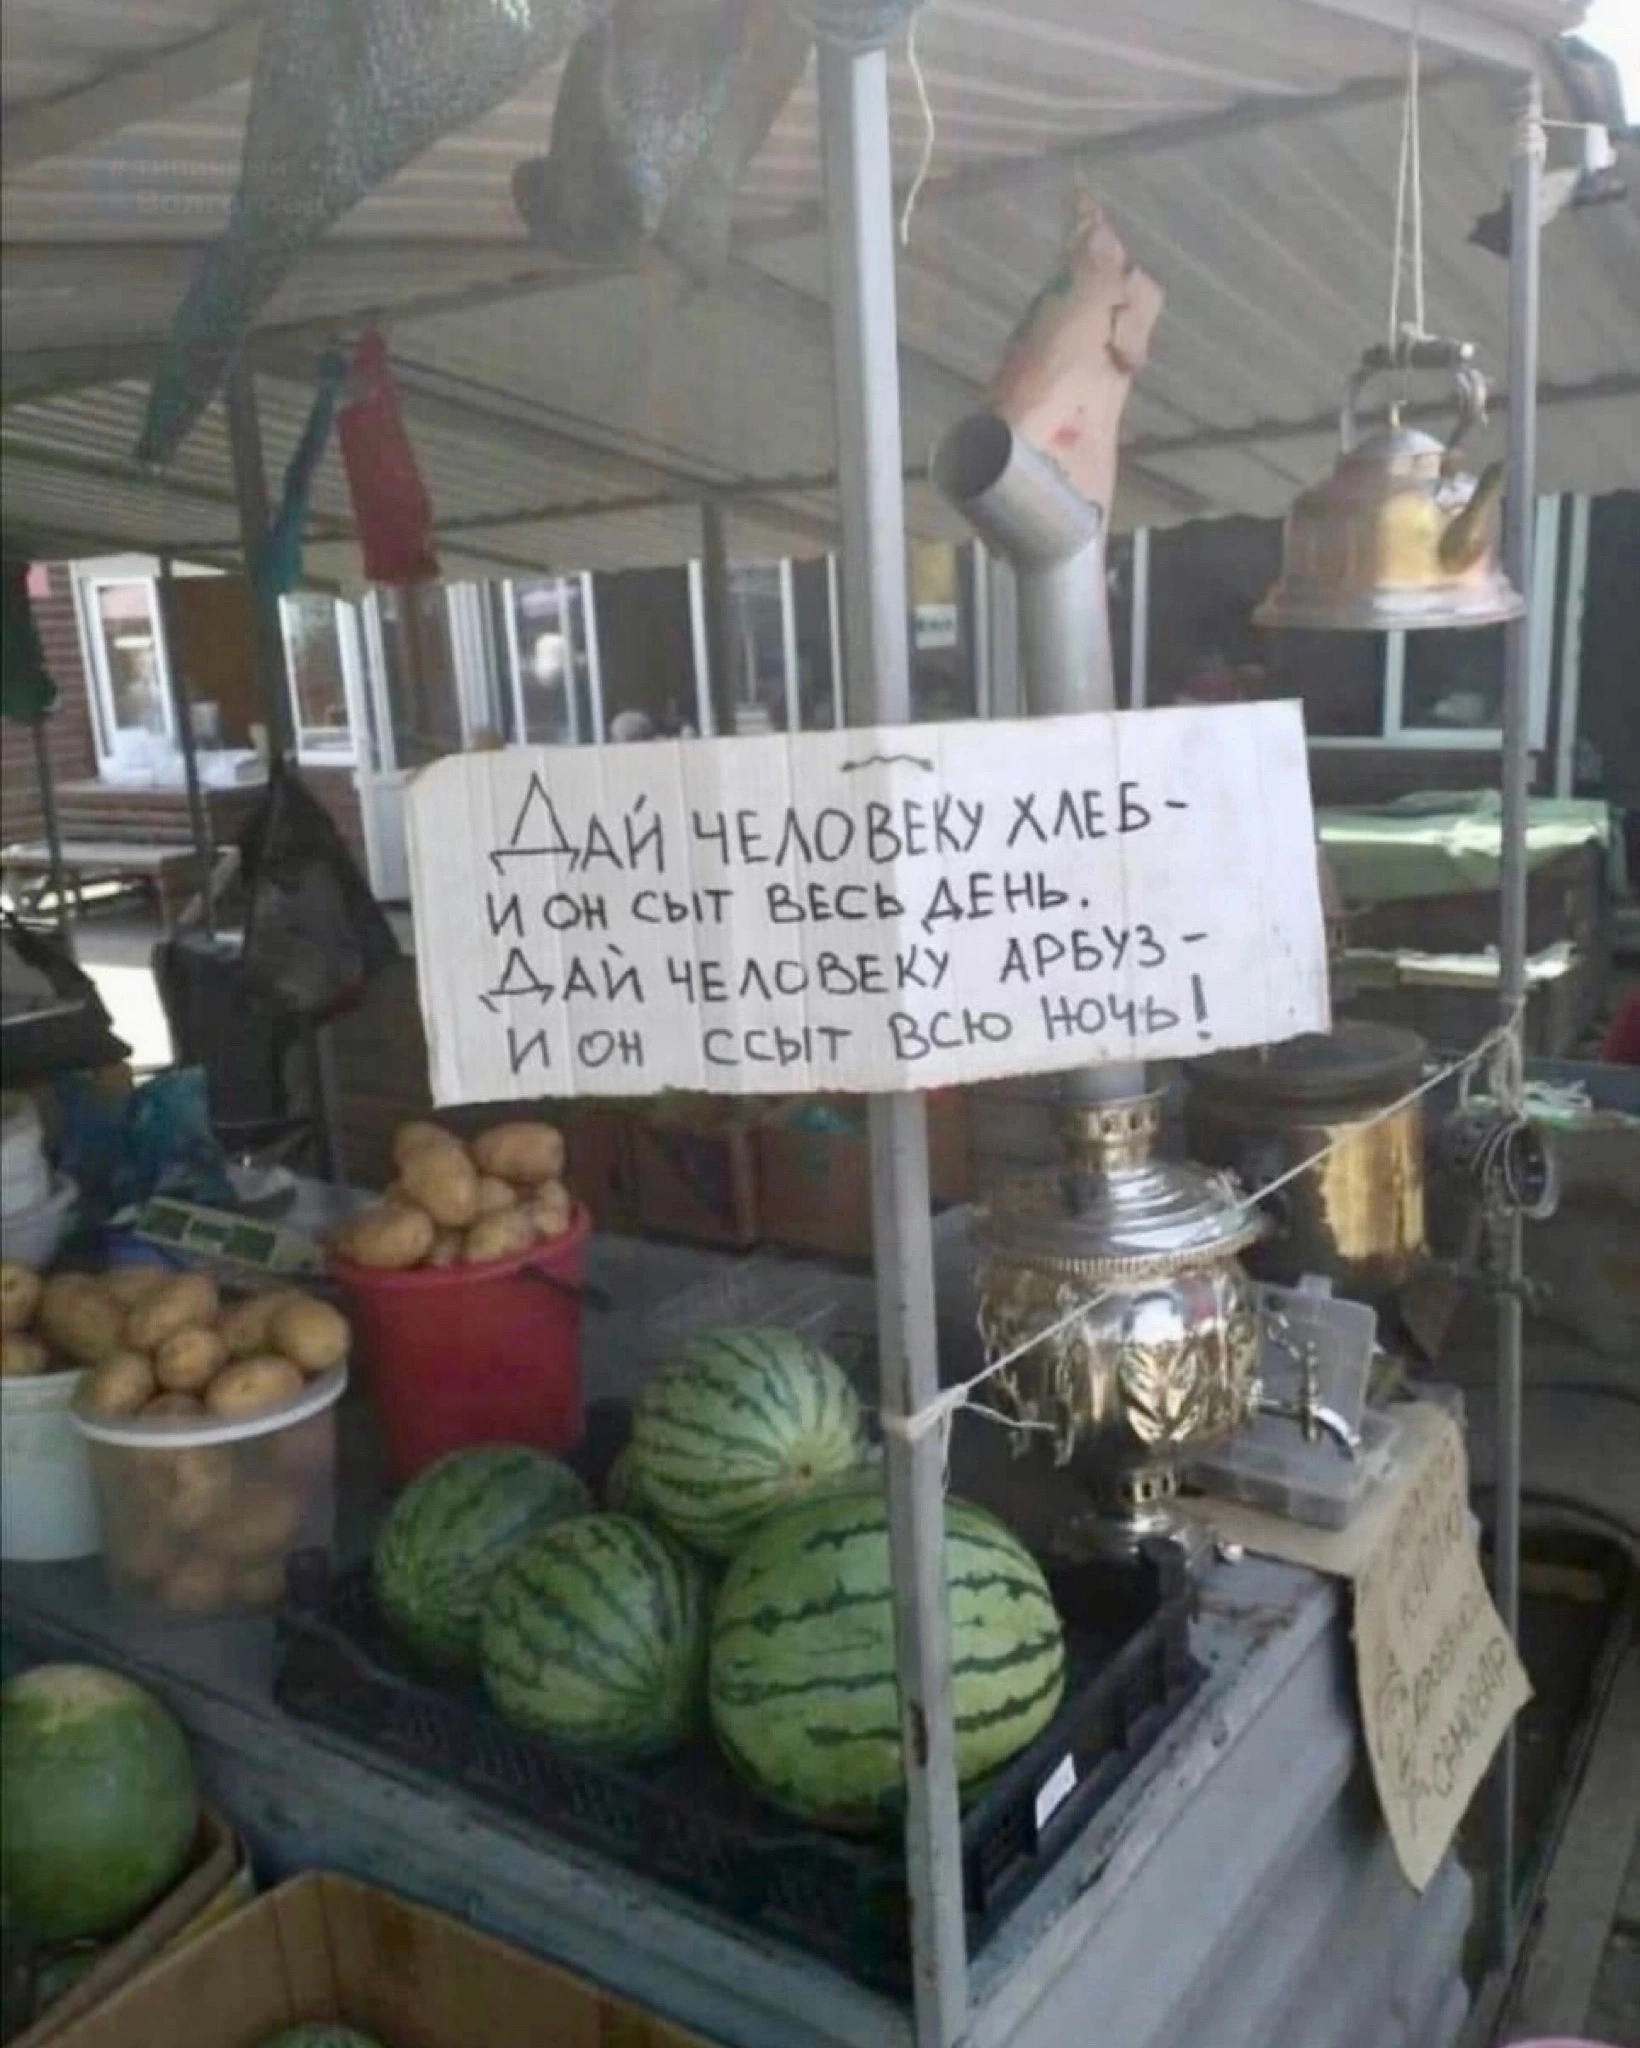 # типичный
Волгоград
Дай человеку хлеб -
и он сыт весь день.
Дай человеку арбуз -
и он ссыт всю ночь!
дровяной
самовар